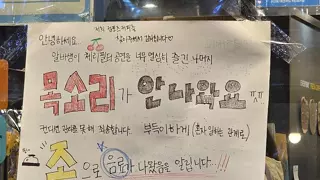 안녕하세요
알바생이 체리필터 공연을 너무 열심히 즐긴 나머지
목소리가 안 나와요 ㅠㅠ
컨디션 관리를 못 해 죄송합니다. 부득이하게 (혼자 일하는 관계로)
종으로 음료가 나왔음을 알립니다...!!!